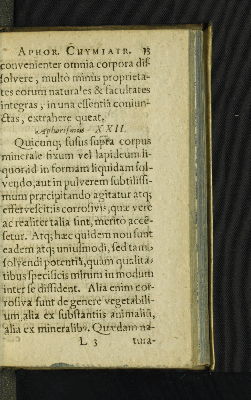 APHOR. CHYMIATR. 13
convenienter omnia corpora dis-
solvere, multò minùs proprieta-
tes eorum naturales & facultates
integras, in una essentiâ coniun-
ctas, extrahere queat.
Aphorismus XXII.
Quicunq; fusus supra corpus
minerale fixum vel lapideum li-
quor id in formam liquidam sol-
vendo, aut in pulverem subtilissi-
mum præcipitando agitatur atq;
effervescit; is corrosivis, quæ verè
ac realiter talia sint, meritò accē-
setur. Atq; hæc quidem non sunt
eadem atq; uniusmodi, sed tam
solvendi potentiâ, quàm qualita-
tibus specificis mirum in modum
inter se dissident. Alia enim cor-
rosiva sunt de genere vegetabili-
um, alia ex substantiis animaliū,
alia ex mineralibꝰ. Quædam na-
L 3 tura-